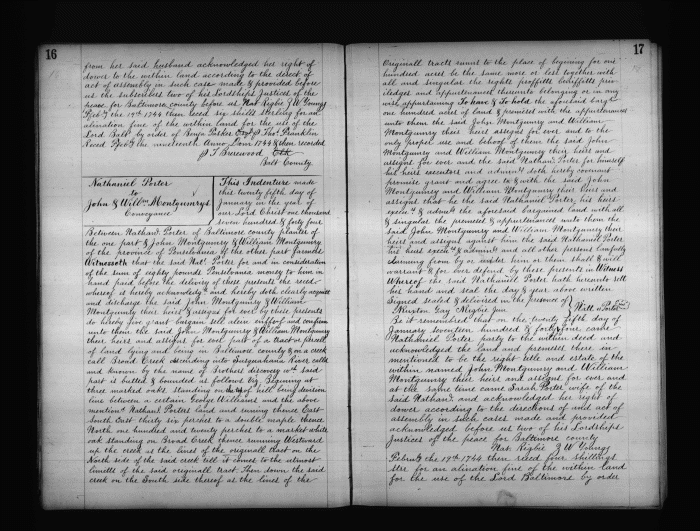 16
from her said husband acknowledged her right of
dower to the within land according to the direct of
act of assembly in such cases made & provided before
us the subscribers two of his Lordships Justices of the
peace for Baltimore County before us Nat Rigbie J W Youngs
the 19th 1744 then reced six shills sterling for an
alination fine of the within land for the use of the
Lord Balt by order of Benja Tasker Esq Thos Franklin
Reced the nineteenth Anno Dom 1744 & then recorded
Balt County
Nathaniel Porter
to
John & Willm Montgumrys
Conveyance
This Indenture made
this twenty fifth day of
January in the year of
our Lord Christ one thousand
seven hundred & forty four
Between Nathanl Porter of Baltimore county planter of
the one part & John Montgumry & William Montgumry
of the province of Pensilvania of the other part farmers
Witnessoth that the said Natl Porter for and in consideration
of the sum of eighty pounds Pensilvania money to him in
hand paid before the delivery of these presents the reced
whereof is hereby acknowledg & hereby doth clearly acquitt
and discharge the said John Montgumry & William
Montgumry their heirs & assigns for evil by these presents
do hereby give grant bargain sell alien enffeof and confirm
unto them the said John Montgumry & William Montgumry
their heirs and assigns for evil part of a tract or parcell
of land lying and being in Baltimore County & on a creek
call Broad Creek descending into Susquahana River called
and known by the name of Brothers discovery wch said
part is butted & bounded as follows viz. Begining at
three marked oaks standing on the top of hill being division
line between a certain George Williams and the above
mentiond Nathanl Porters land and runing thence East
South East thirty six perches to a double maple thence
North one hundred and twenty perches to a market white
oak standing on Broad Creek thence running Westward
up the creek as the lines of the originall tract on the
North side of the said creek till it comes to the utmost
limetts of the said originall tract Then down the said
creek on the South side thereof as the lines of the
17
Originall tracts runs to the place of begining for one
hundred acres be the same more or less together with
all and singular the rights proffitts benifitts priv
iledges and appurtenances thereunto belonging or in any
wise appurtaining To have & To hold the aforesaid barg
one hundred acres of land & premises with the appurtenances
unto them the said John Montgumry and William
Montgumry their heirs assigns for ever and to the
only proper use and behoof of them the said John
Montgumry and William Montgumry their heirs and
assigns for ever and the said Nathanl Porter for himself
his heirs executors and adminrs doth hereby covenant
promise grant and agree to & with the said John
Montgumry and William Montgumry their heirs and
assigns that he the said Nathaniel Porter his heirs
& adminrs the aforesaid bargained land with all
& singular the premises & appurtenances unto them the
said John Montgumry and William Montgumry their
heirs and assigns against him the said Nathaniel Porter
his heirs & adminrs and all other persons lawfully
claiming from by or under him or them shall & will
warrant & for ever defend by these presents in Witness
Whereof the said Nathaniel Porter hath hereunto sett
his hand and seal the day & year above written
Signed sealed & delivered in the presence of
Winston Gay Wrigby Jun
Be it remembred that on the twenty fifth day of
January seventeen hundred & forty four came
Nathaniel Porter party to the within deed and
acknowledged the land and premisses there in
mentioned to be the right title and estate of the
within named John Montgumry and William
Montgumry their heirs and assigns for ever and
at the same time came Sarah Porter wife of the
said Nathanl and acknowledged her right of
dower according to the directions of and act of
assembly in such cases made and provided
acknowledged before us two of his Lordships
Justices of the peace for Baltimore county
Nat Rigbie J W Youngs
the 19th 1744 then reced four shillings
ster for an alination fine of the within land
for the use of the Lord Baltimore by order